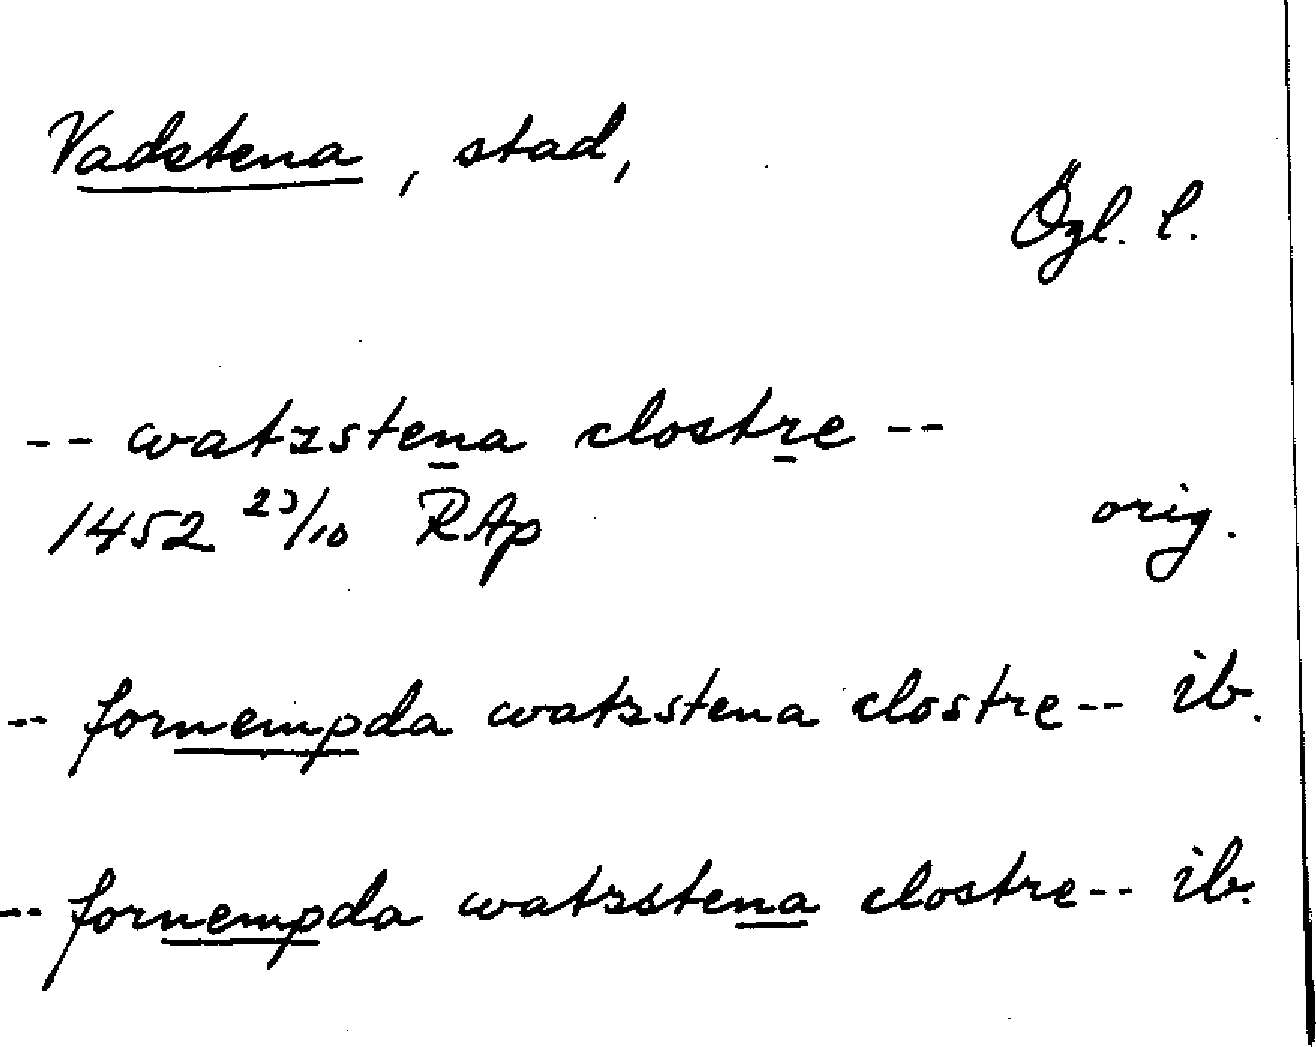 Vadstena, stad,
Ögl. l.
-- watzstena clostre --
1452 23/10 RAp orig.
-- fornempda watzstena clostre -- ib.
-- fornempda watzstena clostre -- ib.